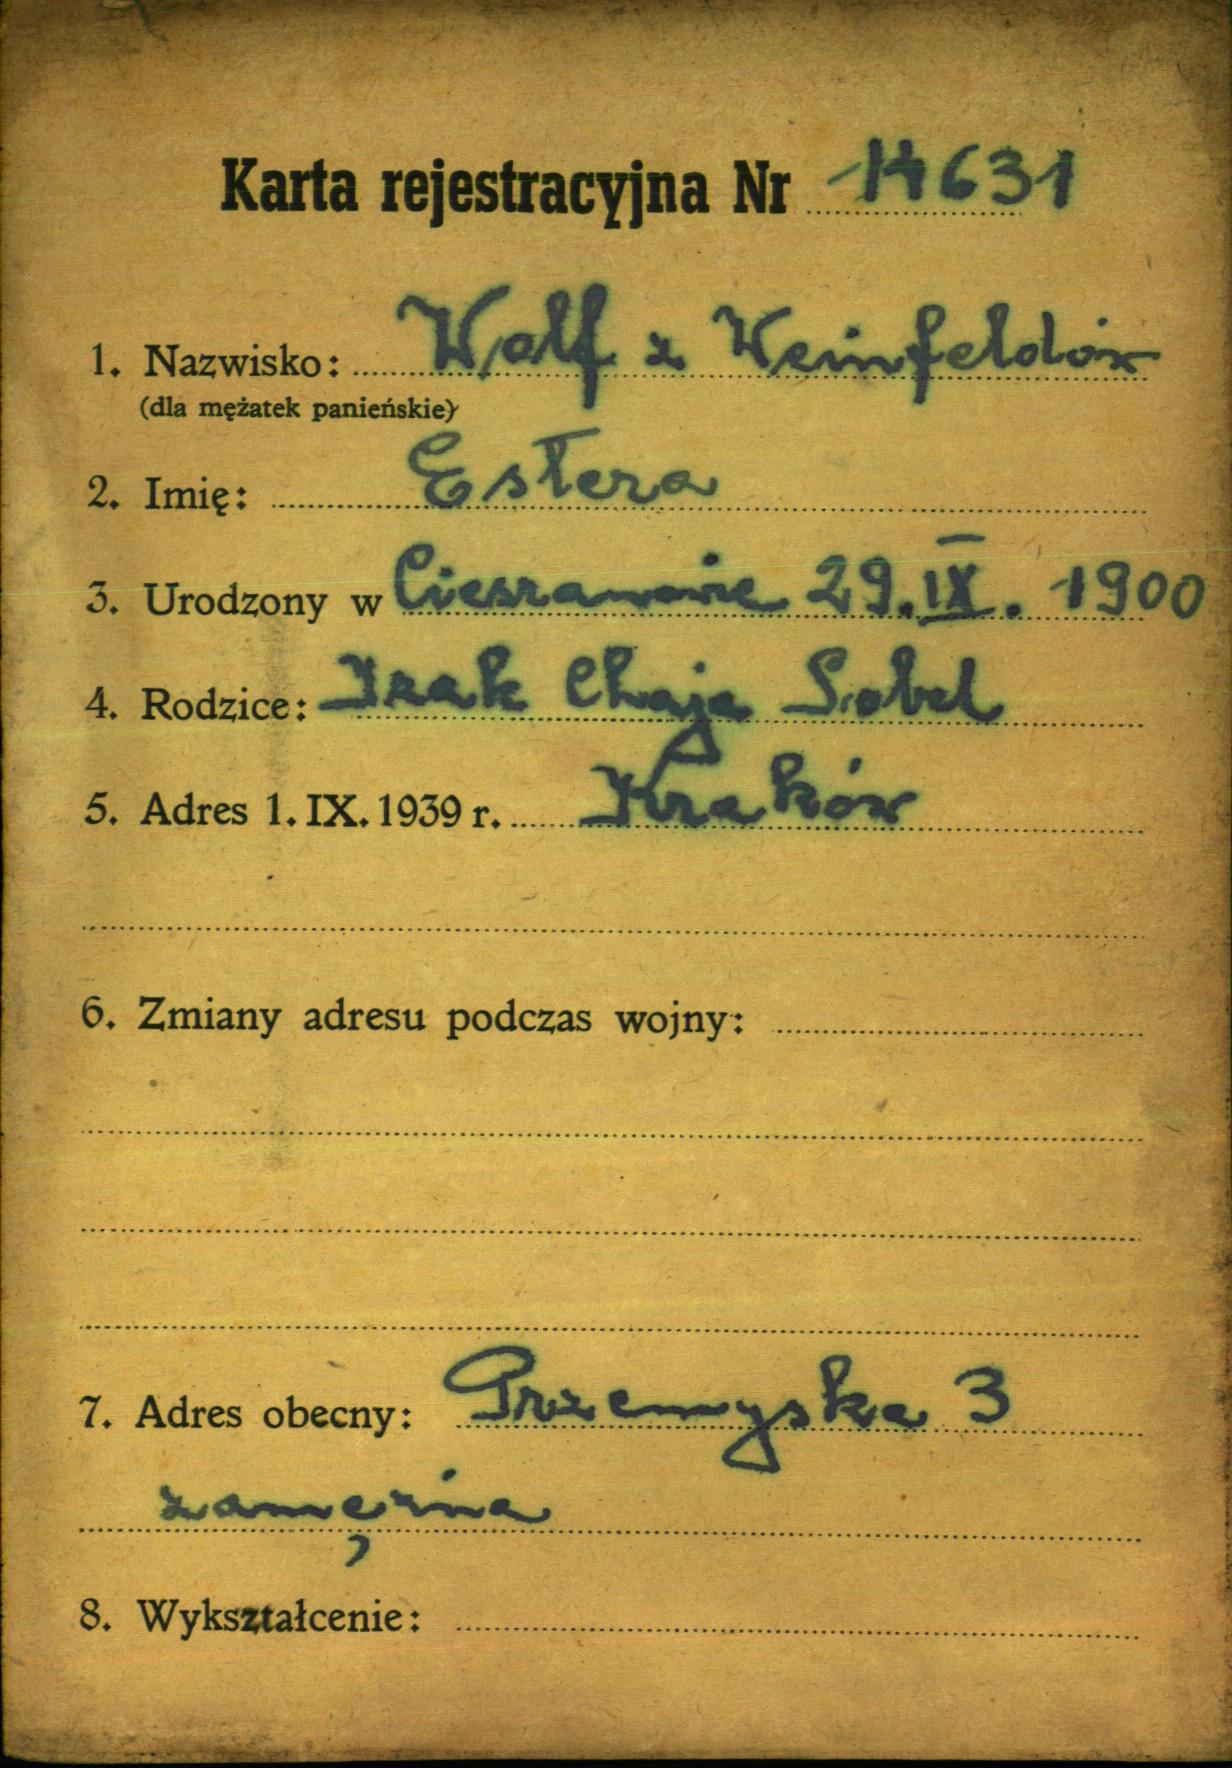 Karta rejestracyjna Nr 14631
1. Nazwisko: Wolf z Weinfeldów
(dla mężatek panieńskie)
2. Imię: Estera
3. Urodzony w Cieszanowie 29. IX. 1900
4. Rodzice: Izak Chaja Sobel
5. Adres 1. IX. 1939 r. Kraków
6. Zmiany adresu podczas wojny:
7. Adres obecny: Przemyska 3
zamężna
8. Wykształcenie: